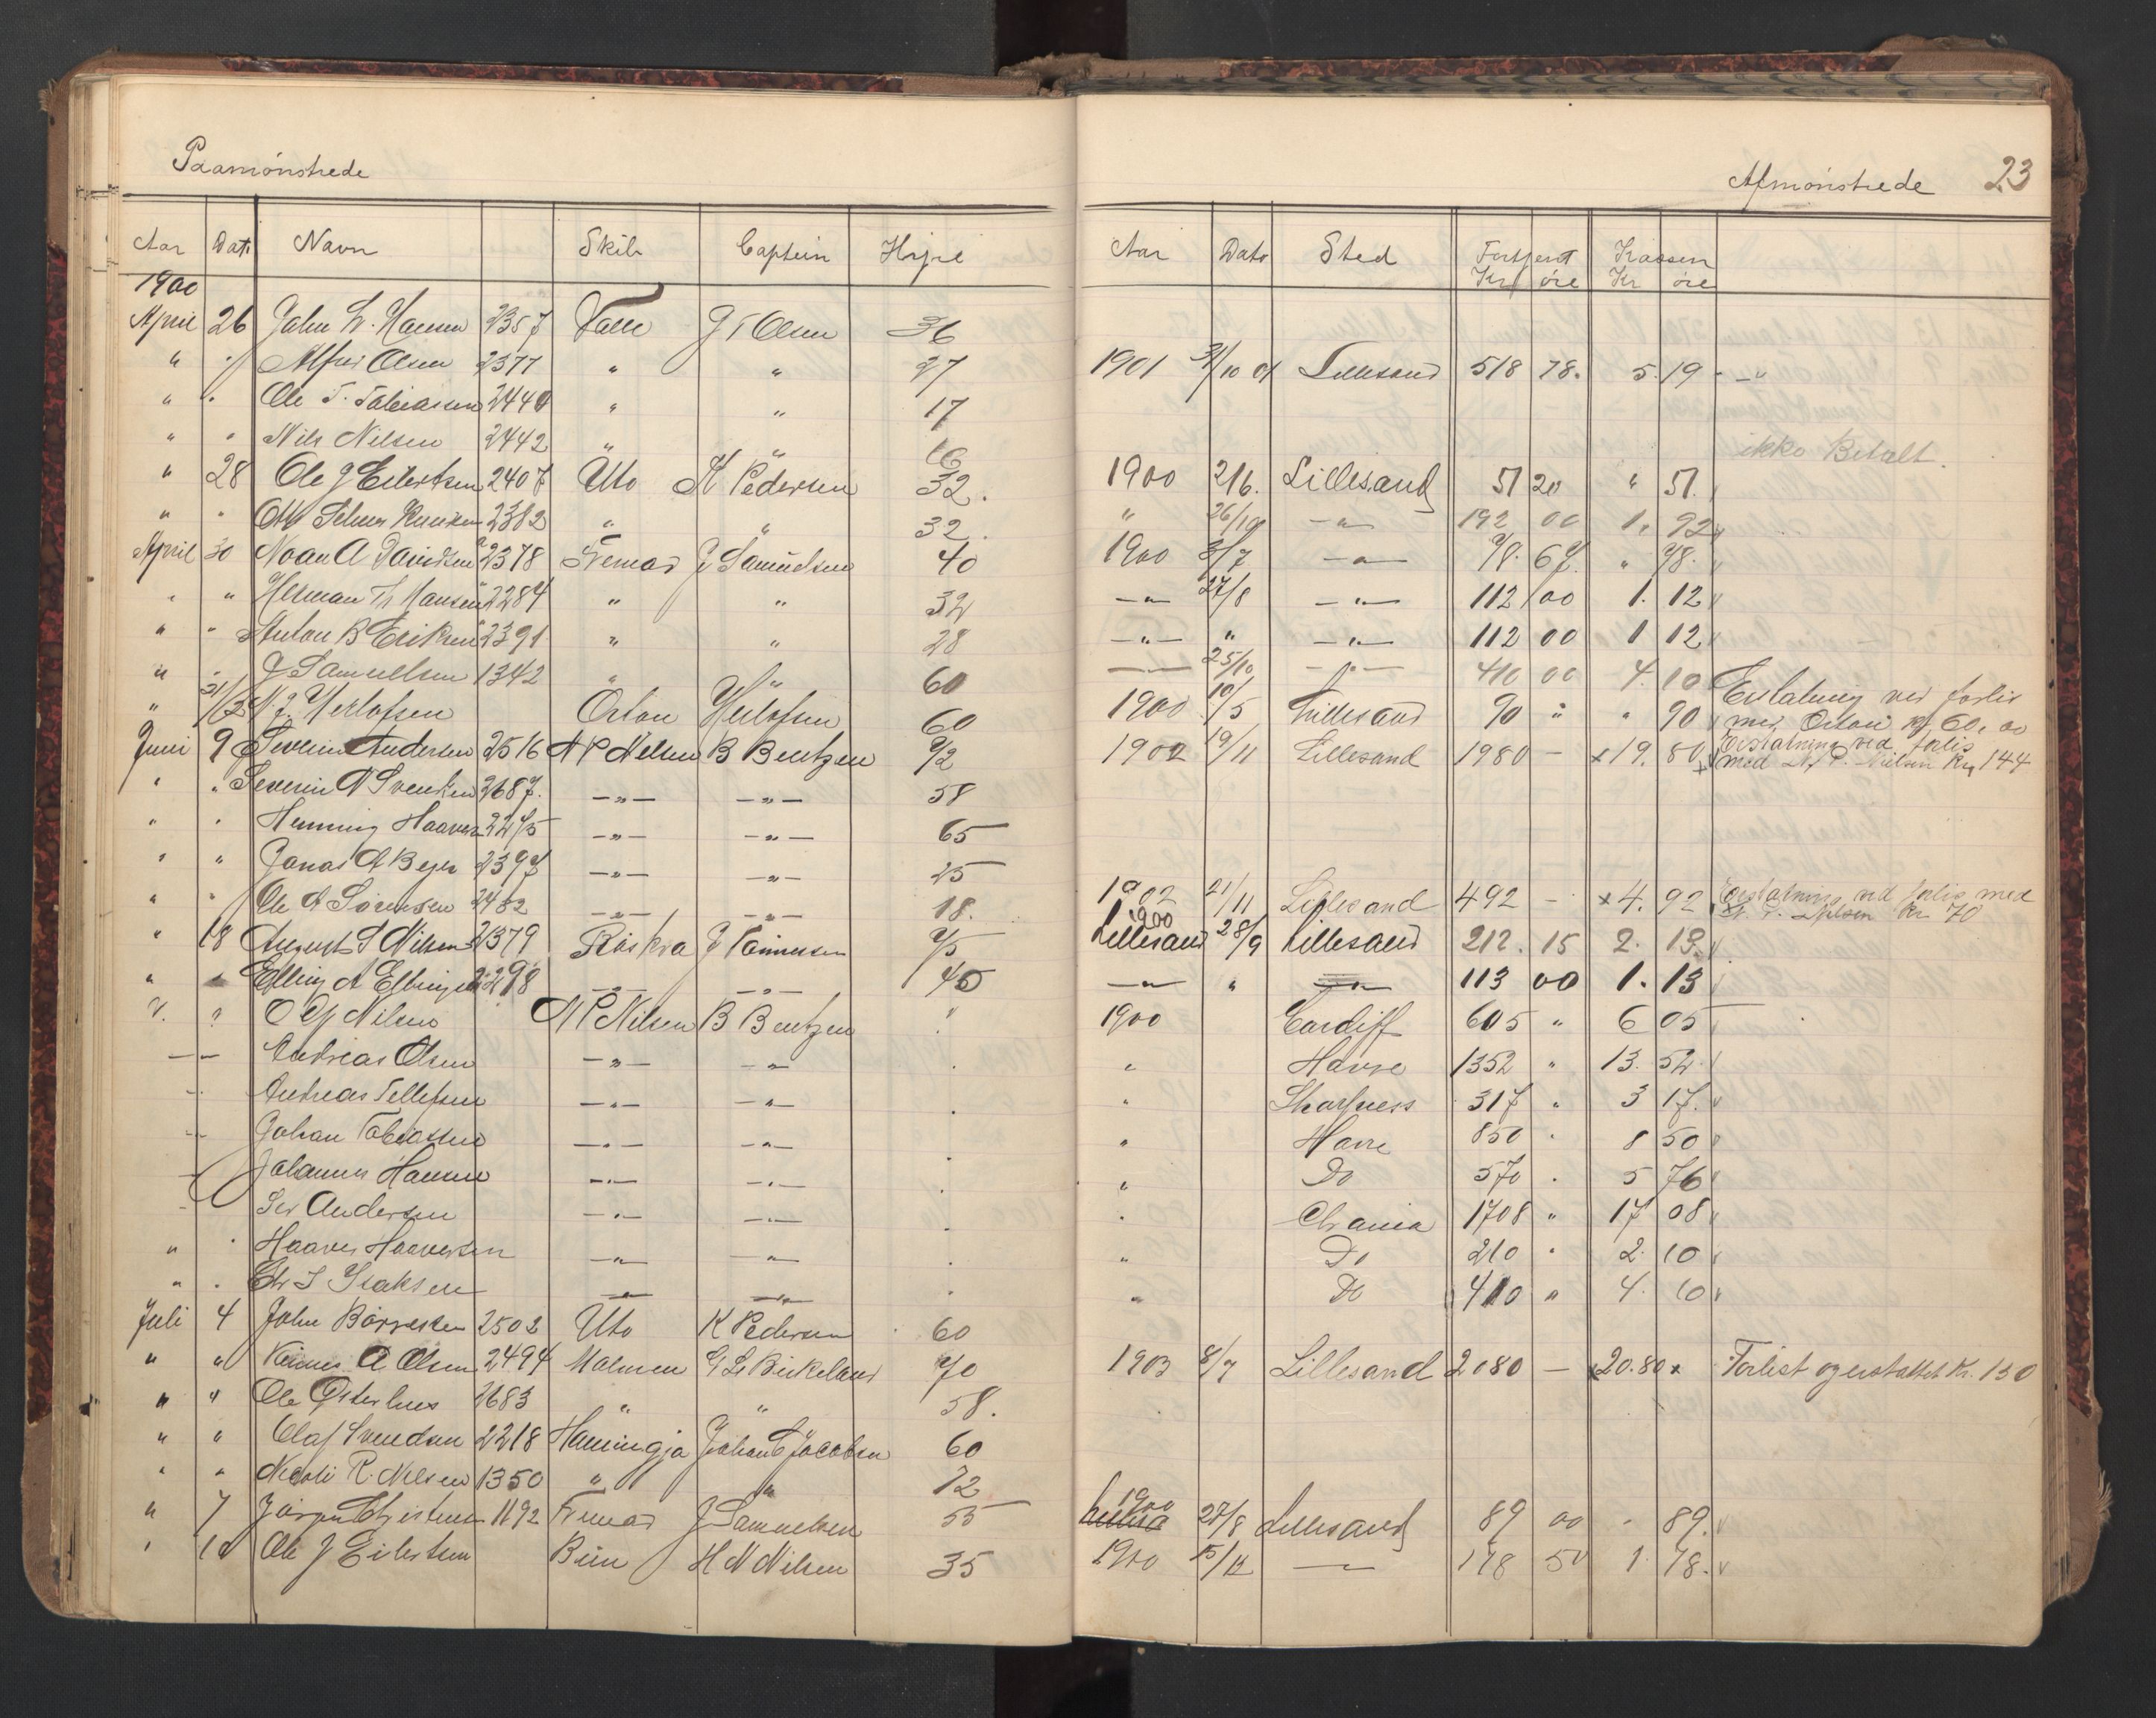 Paamönstrede
Afmönstrede 23
Aar Dato Navn Skib Captein Hyre
Aar Dato Sted Fortjent Kr øre Kassen Kr øre
1900
April 26 John L. Hansen 2357 Valle J T Olsen 36
" " Alfred Olsen 2377 " " 27 1901 31/10 01 Lillesand 518 78. 5.19 - —"
" " Ole T. Tobiassen 2440 " " 17
" " Nils Nilsen 2442 " " 16 ikke Betalt.
" 28 Ole J Eilertsen 2407 Uto K Pedersen 32. 1900 2/6. Lillesand 51 20 " 51.
" " Otto 2382 " " 32. " 26/10 —"— 192 00 1. 92
April 30 Noan A Davidsen 2378 Fremad J Samuelsen 40 1900 3/7 —"— 98. 67. " 98.
" " Herman Th Hansen 2284 " " 32 —"— 27/8 —"— 112 00 1. 12
" " Anton B Eriksen 2391 " " 28 —"— " —"— 112 00 1 12
" " J Samuelsen 1342 " " 60 —— 25/10 —"— 410 00 4. 10 Erstatning ved forlis
" 31/3 N. J. Herlofsen Orion Herlofsen 60 1900 10/5 Lillesand 90 " " 90 med Orion Kr 60,00
Juni 9 Severin Andersen 2516 N P Nielsen B Bentzen 92 1902 19/11 Lillesand 1980 — x19. 80 Erstatning ved forlis med N. P. Nielsen Kr 144
" " Severin A Svendsen 2687. —"— —"— 58
" " Henning Haaversen 2475 —"— —"— 65
" " Jonas A Beyer 2397 —"— —"— 25
" " Ole A Sörensen 2482 —"— —"— 18. 1902 21/11 Lillesand 492 - x4. 92 Erstatning ved forlis med N. P. Nilsen Kr 70
" 18 August S Nilsen 2379 Röskva J Tönnesen 45 1900 Lillesand 28/9 Lillesand 212. 15 2. 13.
" " Elling A Ellingsen 2298 —"— —"— 45 —"— " —"— 113 00 1. 13
V. ? O Nilsen N P Nilsen B Bentzen " 1900 Cardiff 605 " 6 05
— — Andreas Olsen —"— —"— . " Havre 1352 " 13. 52
Andreas Tellefsen —"— —"— . " Sharpness 317 " 3 17.
Johan Tobiassen —"— —"— . " Havre 850 " 8 50
Johannes Hansen —"— —"— . " Do 570 . 5 76
Sev Andersen —"— —"— . " Chrania 1708 " 17 08
" " Haaver Haaversen —"— —"— . " Do 210 " 2. 10
" " Chr I Isaksen —"— —"— . " Do 410 " 4. 10
Juli 4 John Börresen 2502 Uto K Pedersen 60
" " A Olsen 2494 Malmen G S Birkeland 70 1903 8/7 Lillesand 2080 — x20.80x Forlist og erstattet Kr. 150
" " Ole Österhus 2683 " " 58.
" " Olaf Svendsen 2218 Hamingja Johan C Jacobsen 60
" " Nicolai R. Nilsen 1350 " " 72
" 7 Jörgen Christensen 1192 Fremad J Samuelsen 55 1900 27/8 Lillesand 89 00 " 89.
" 10 Ole J Eilertsen H N Nilsen 35 1900 15/12 —"— 178 50 1. 78.